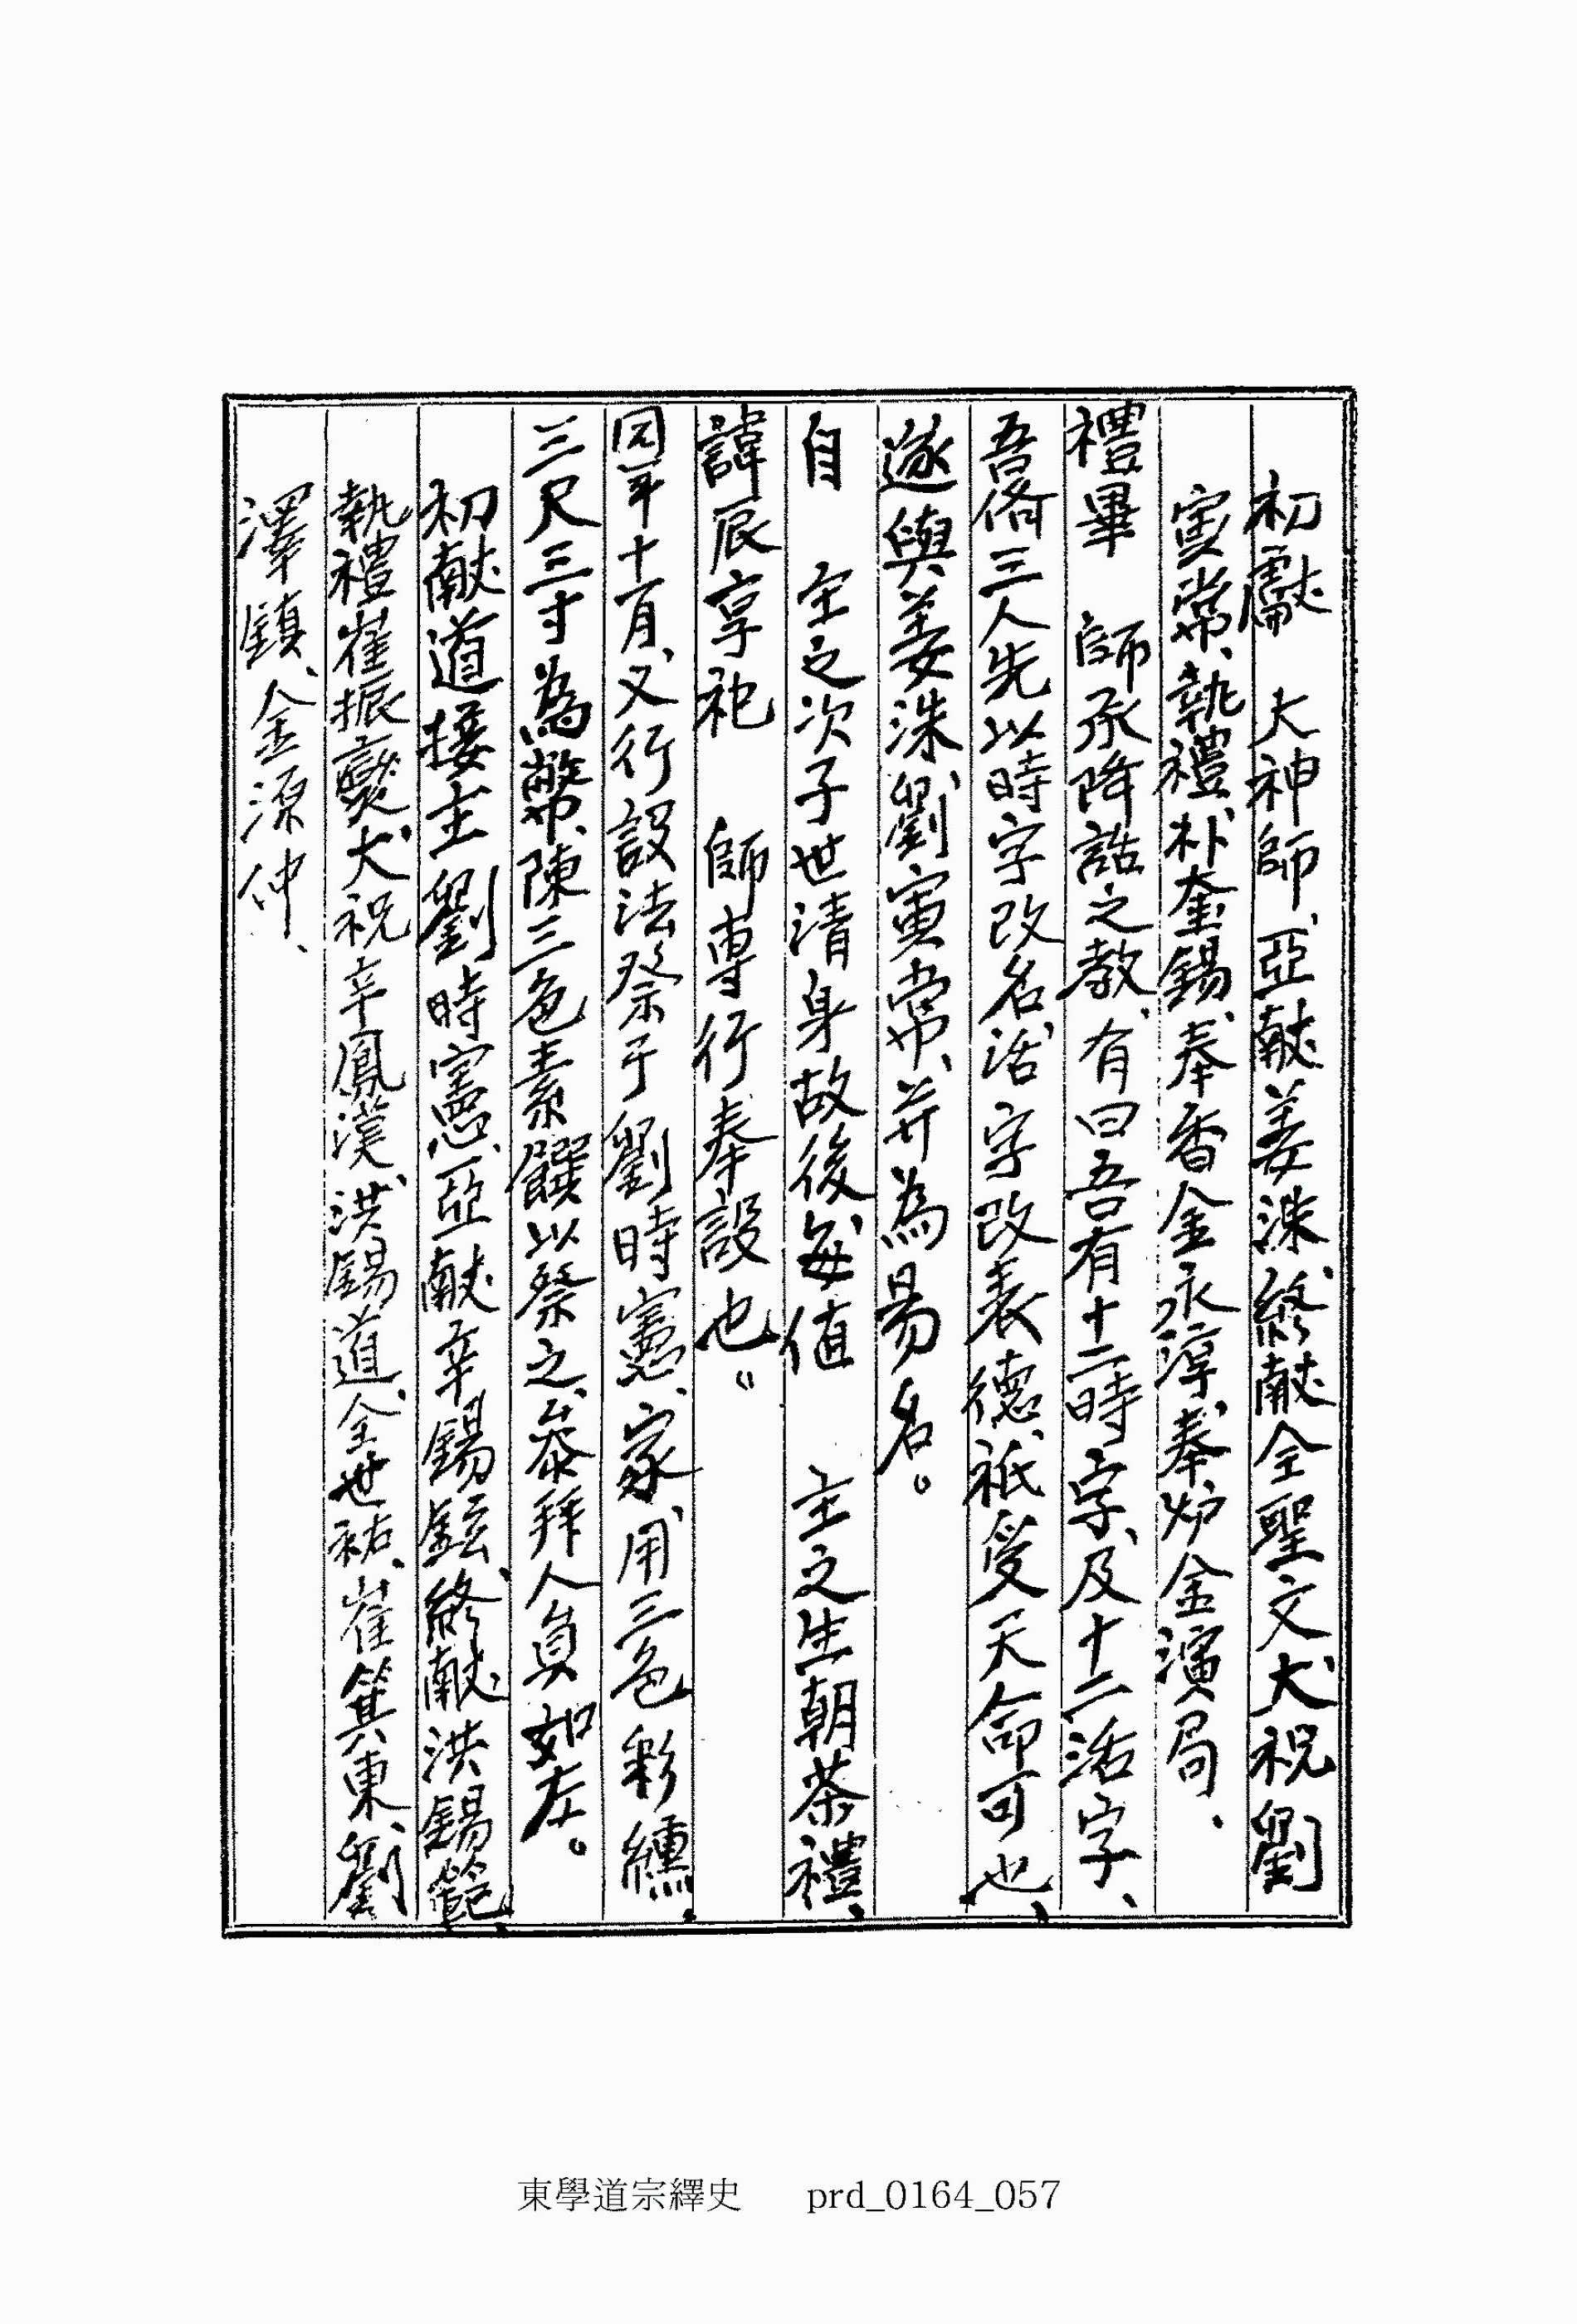 初獻 大神師、亞献姜洙、終献全聖文、大祝劉
寅常、執禮、朴奎錫、奉香金永淳、奉炉金演局、
禮畢 師承降誥之教、有曰吾有十二時字、及十二活字、
吾儕三人先以時字改名、活字改表德、祇受天命可也、
遂與姜洙、劉寅常、并為易名。
自 主之次子世清身故後、每值 主之生朝茶禮、
諱辰享祀 師専行奉設也。
同年十月、又行設法祭于劉時憲、家、用三色彩纁、
三尺三寸為幣、陳三色素饌以祭之、叅拜人員如左。
初献道接主劉時憲、亞献辛錫鉉、終献洪錫範、
執禮崔振燮、大祝辛鳳漢、洪錫道、全世祐、崔箕東、劉
澤鎮、金源仲、
東學道宗繹史 prd_0164_057